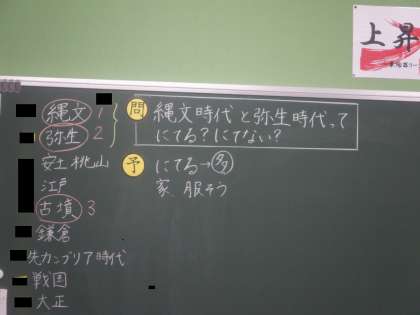 上昇
縄文 1
弥生 2
安土桃山
江戸
古墳 3
鎌倉
先カンブリア時代
戦国
大正
問 縄文時代と弥生時代って
にてる?にてない?
予 にてる→多
家、服そう